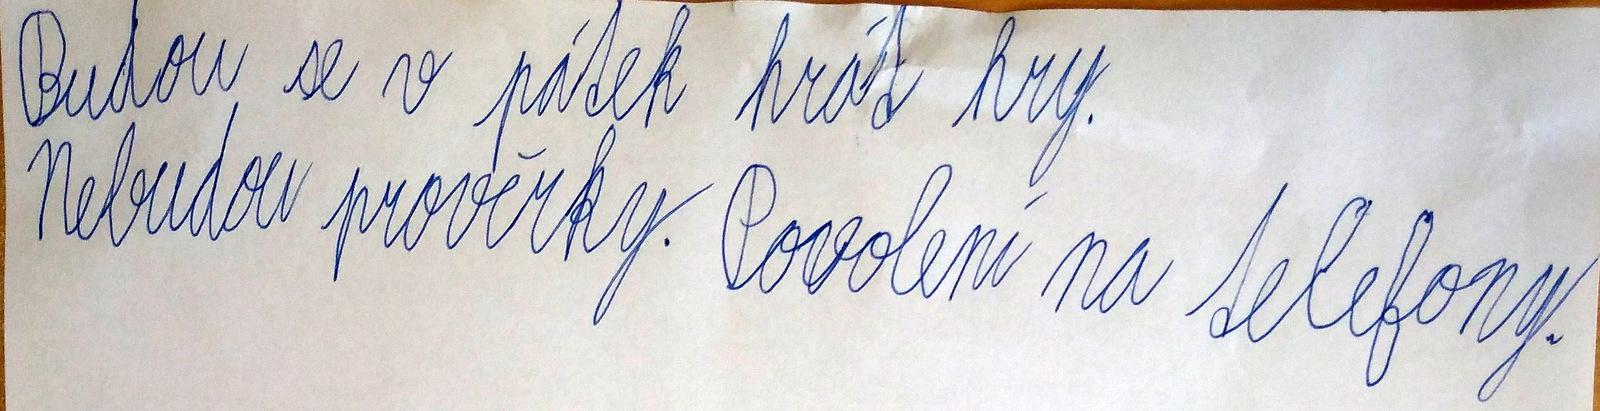 Budou se v pátek hrát hry.
Nebudou prověrky. Povolení na telefony.